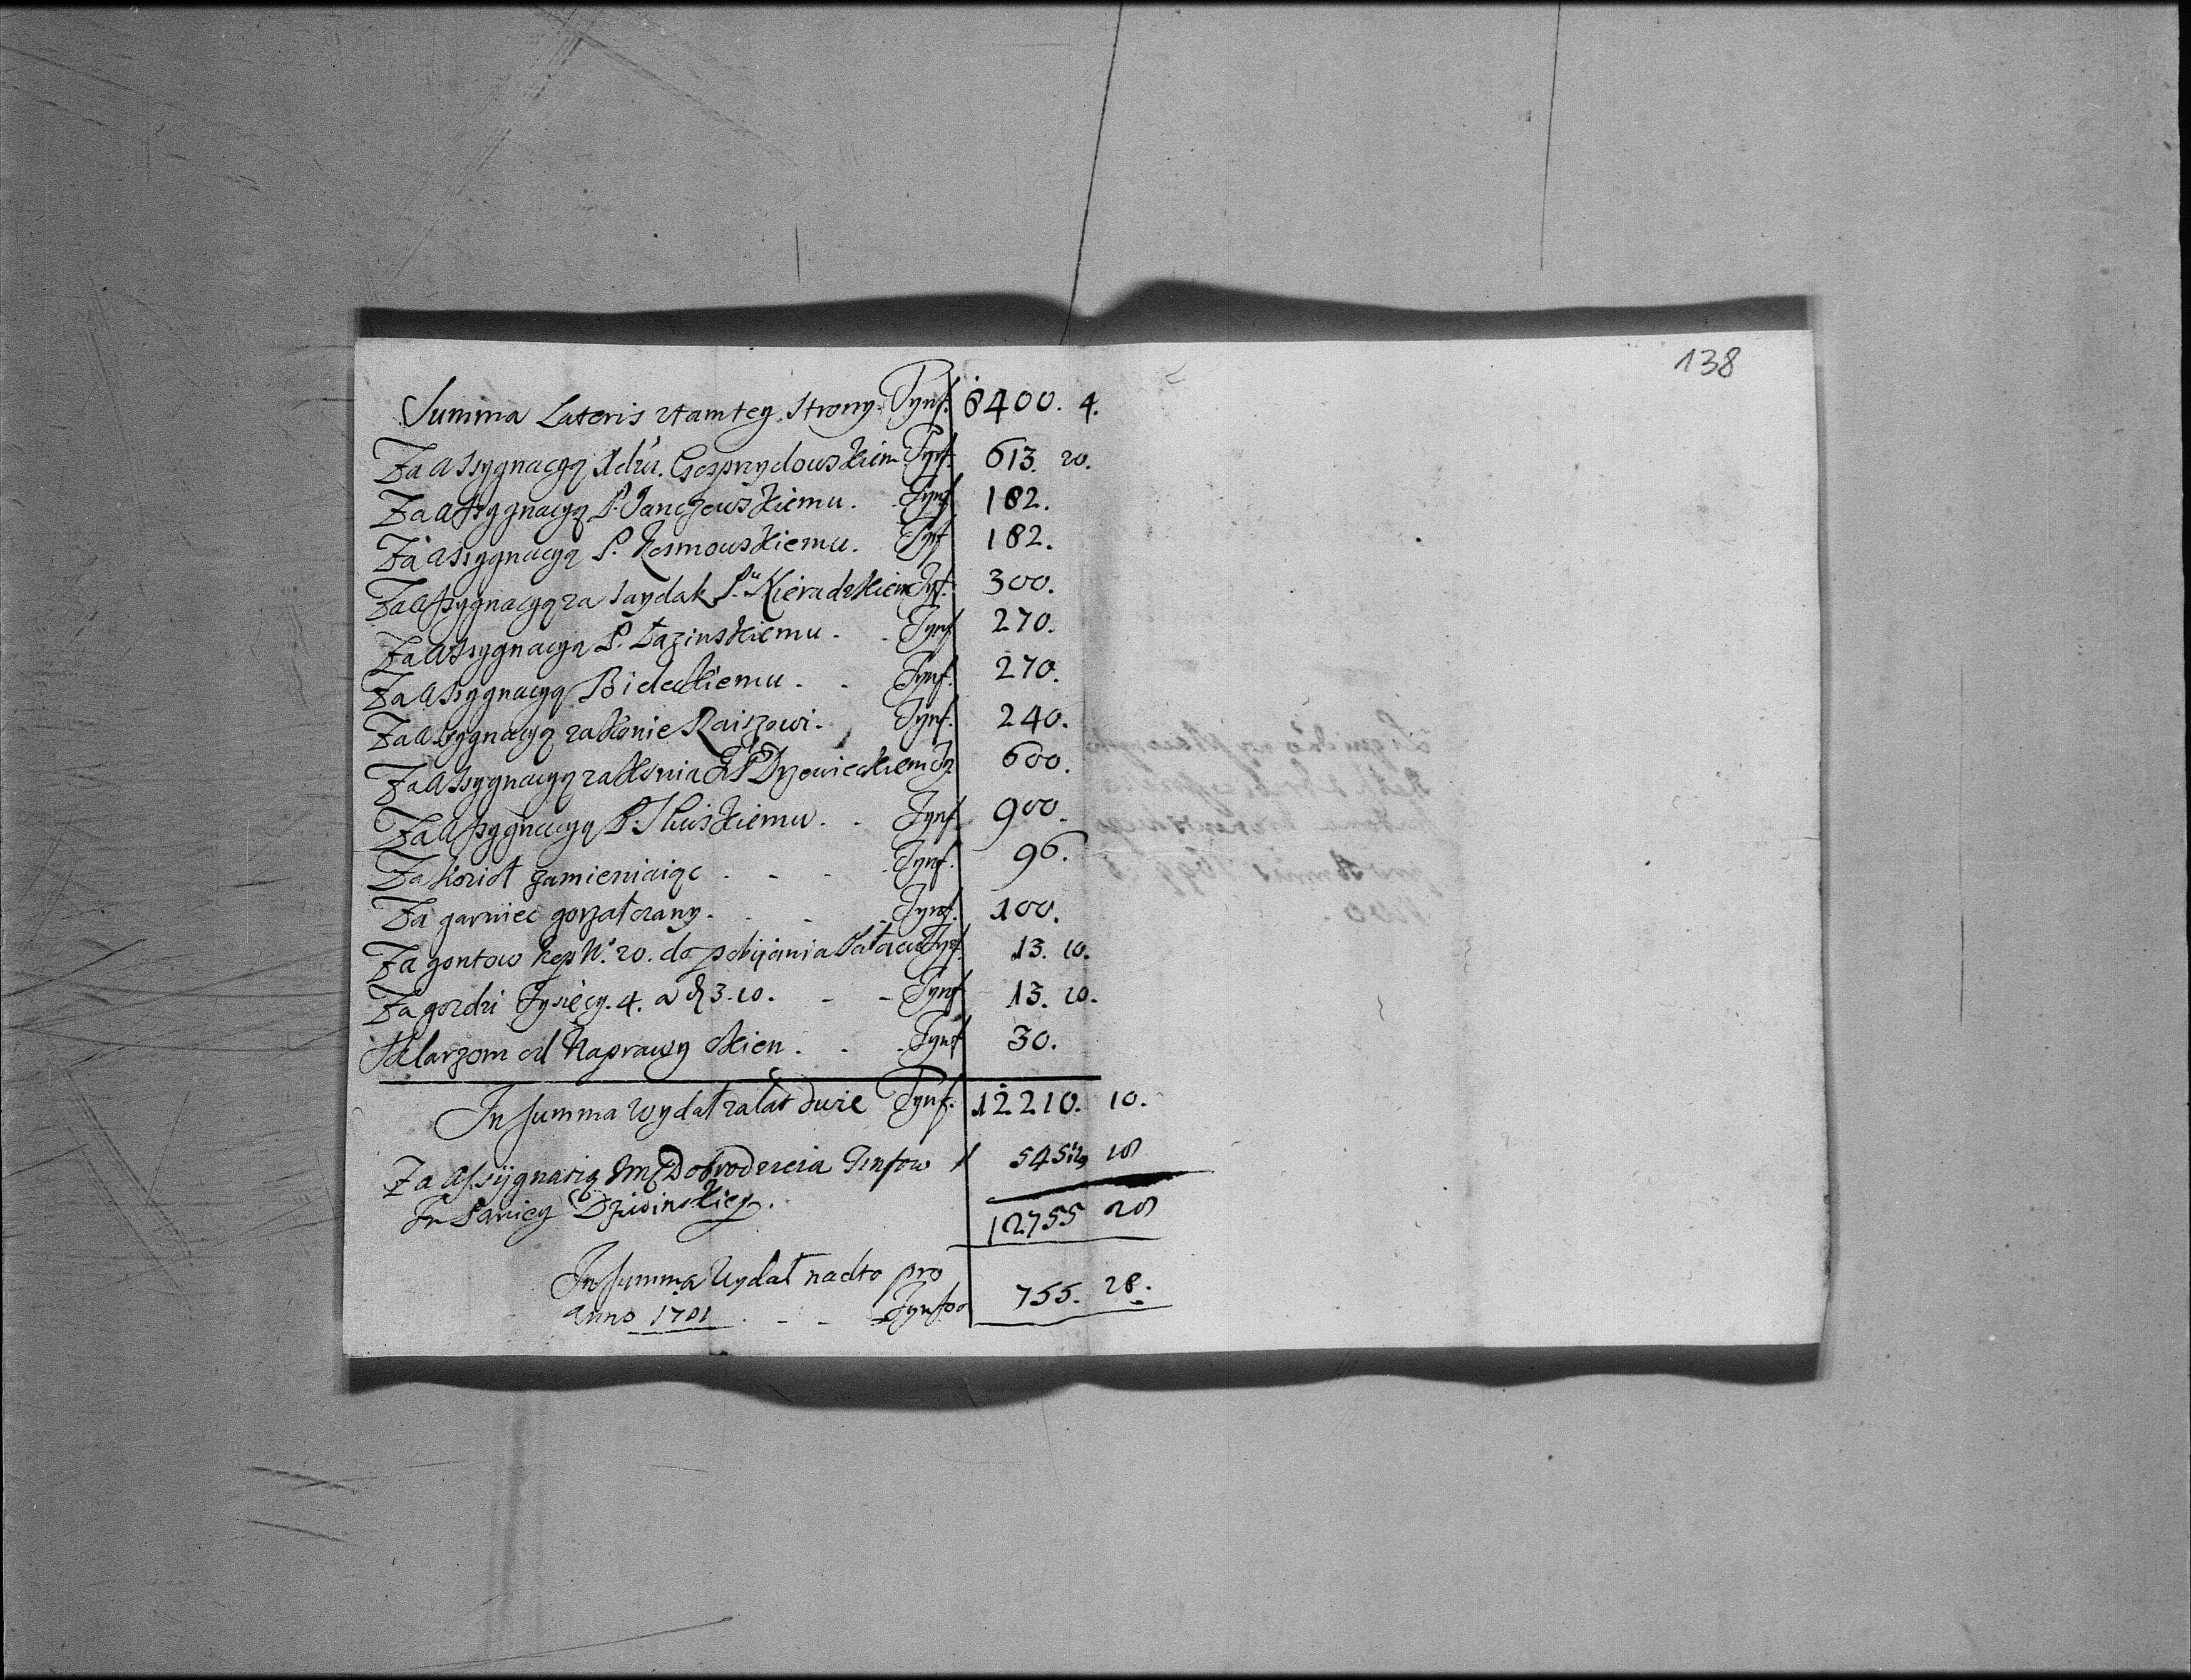 138
Summa Lateris ztamtey strony. Tynf. 8400. 4.
Za assygnacyą Xdzu. Gosprzydowskiem Tynf. 613. 20.
Za assygnacyą P. Janczewskiemu. Tynf 182.
Za assygnacyą P. Kosmowskiemu. Tynf 182.
Za assygnacyą za saydak P. Kieradzkiem Tyf. 300.
Za assygnacyą P. Łazinskiemu. Tynf 270.
Za assygnacyą Bieleckiemu. Tynf. 270.
Za assygnacyą za konie Raiszowi. Tynf. 240.
Za assygnacyą za konia P Drzewieckiem Ty. 600.
Za assygnacyą P. Iliiskiemu. Tynf 900.
Za Kozioł zamieniaiąc Tynf. 96.
Za garniec gorzałczany. Tynf. 100.
Za gontow kop No. 20. do pobijania Pałacu Tynf. 13. 10.
Za gozdzi Tysięcy. 4. a 3. 10. Tynf 13. 10.
Sklarzom od Naprawy okien. Tynf 30.
In summa wydał za lat dwie Tynf. 12210. 10.
Za Assÿgnasią Dobrodzieia Tinfow 545 18
Paniey Dziwinskiey. 12755 28
In summa Wydał nadto pro
Anno 1701 Tynfow 755. 28.